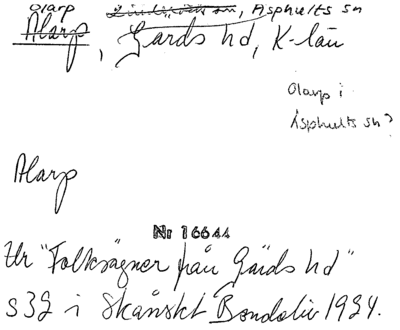 Olarp , Asphults sn
Alarp, Gärds hd, K-län
Olarp i
Asphults sn?
Alarp
Nr 16644
Ur "Folksägner från Gärds hd"
s 32 i Skånskt Bondeliv 1924.